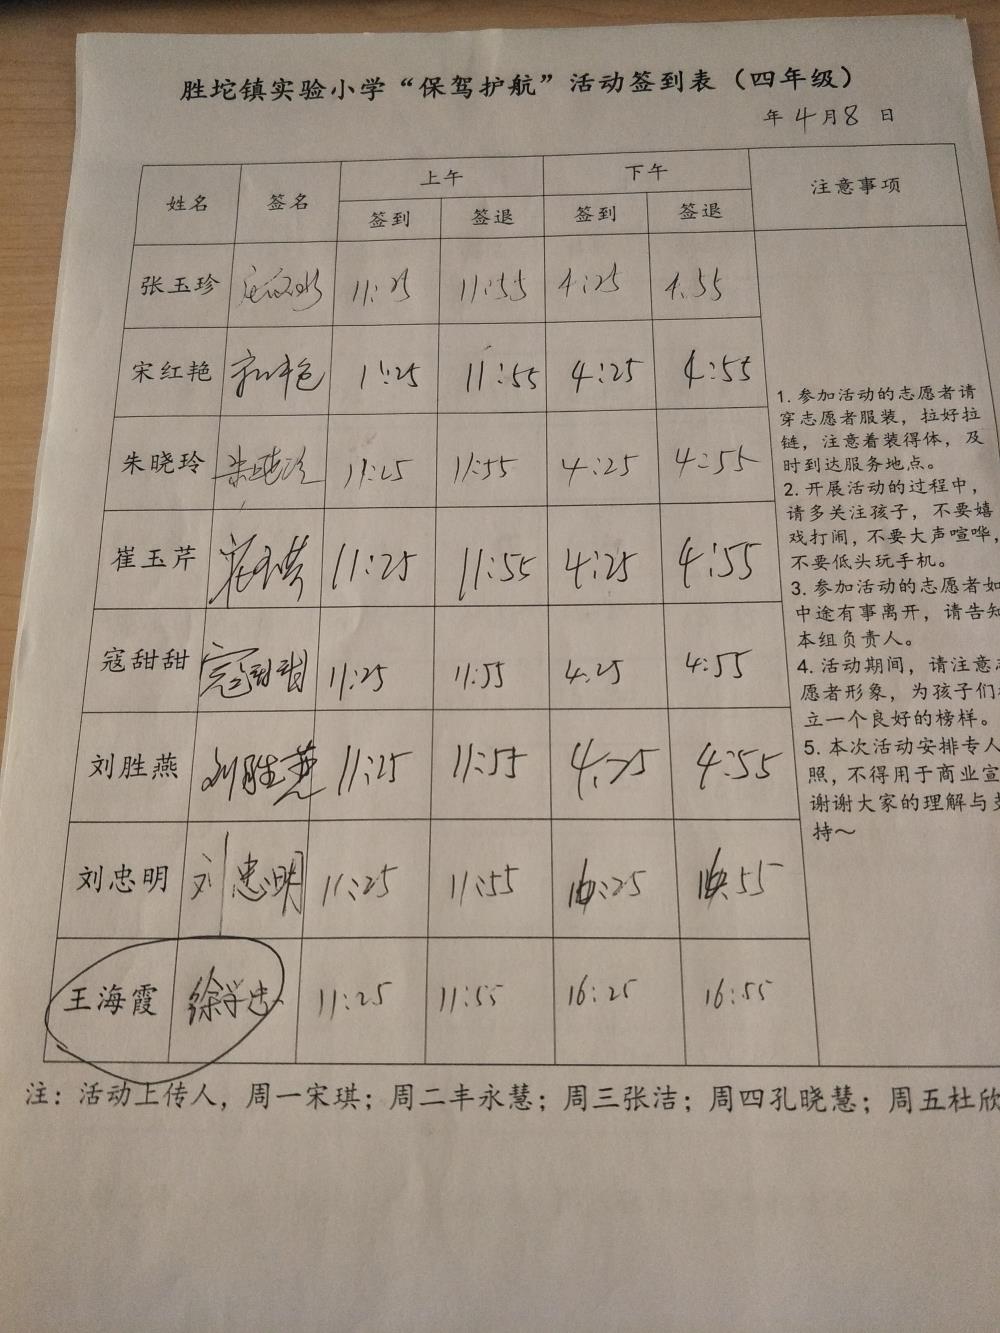 胜坨镇实验小学“保驾护航”活动签到表（四年级）
年 4月8 日
姓名 签名 上午 下午 注意事项
签到 签退 签到 签退
张玉珍 11:25 11:55 4:25 4:55
宋红艳 宋红艳 11:25 11:55 4:25 4:55
朱晓玲 朱晓玲 11:25 11:55 4:25 4:55
崔玉芹 崔玉芹 11:25 11:55 4:25 4:55
寇甜甜 寇甜甜 11:25 11:55 4:25 4:55
刘胜燕 刘胜燕 11:25 11:55 4:25 4:55
刘忠明 刘忠明 11:25 11:55 16:25 16:55
王海霞 徐学忠 11:25 11:55 16:25 16:55
1. 参加活动的志愿者请
穿志愿者服装，拉好拉
链，注意着装得体，及
时到达服务地点。
2. 开展活动的过程中，
请多关注孩子，不要嬉
戏打闹，不要大声喧哗，
不要低头玩手机。
3. 参加活动的志愿者如
中途有事离开，请告知
本组负责人。
4. 活动期间，请注意志
愿者形象，为孩子们
立一个良好的榜样。
5. 本次活动安排专人
照，不得用于商业宣
谢谢大家的理解与支
持～
注：活动上传人，周一宋琪；周二丰永慧；周三张洁；周四孔晓慧；周五杜欣